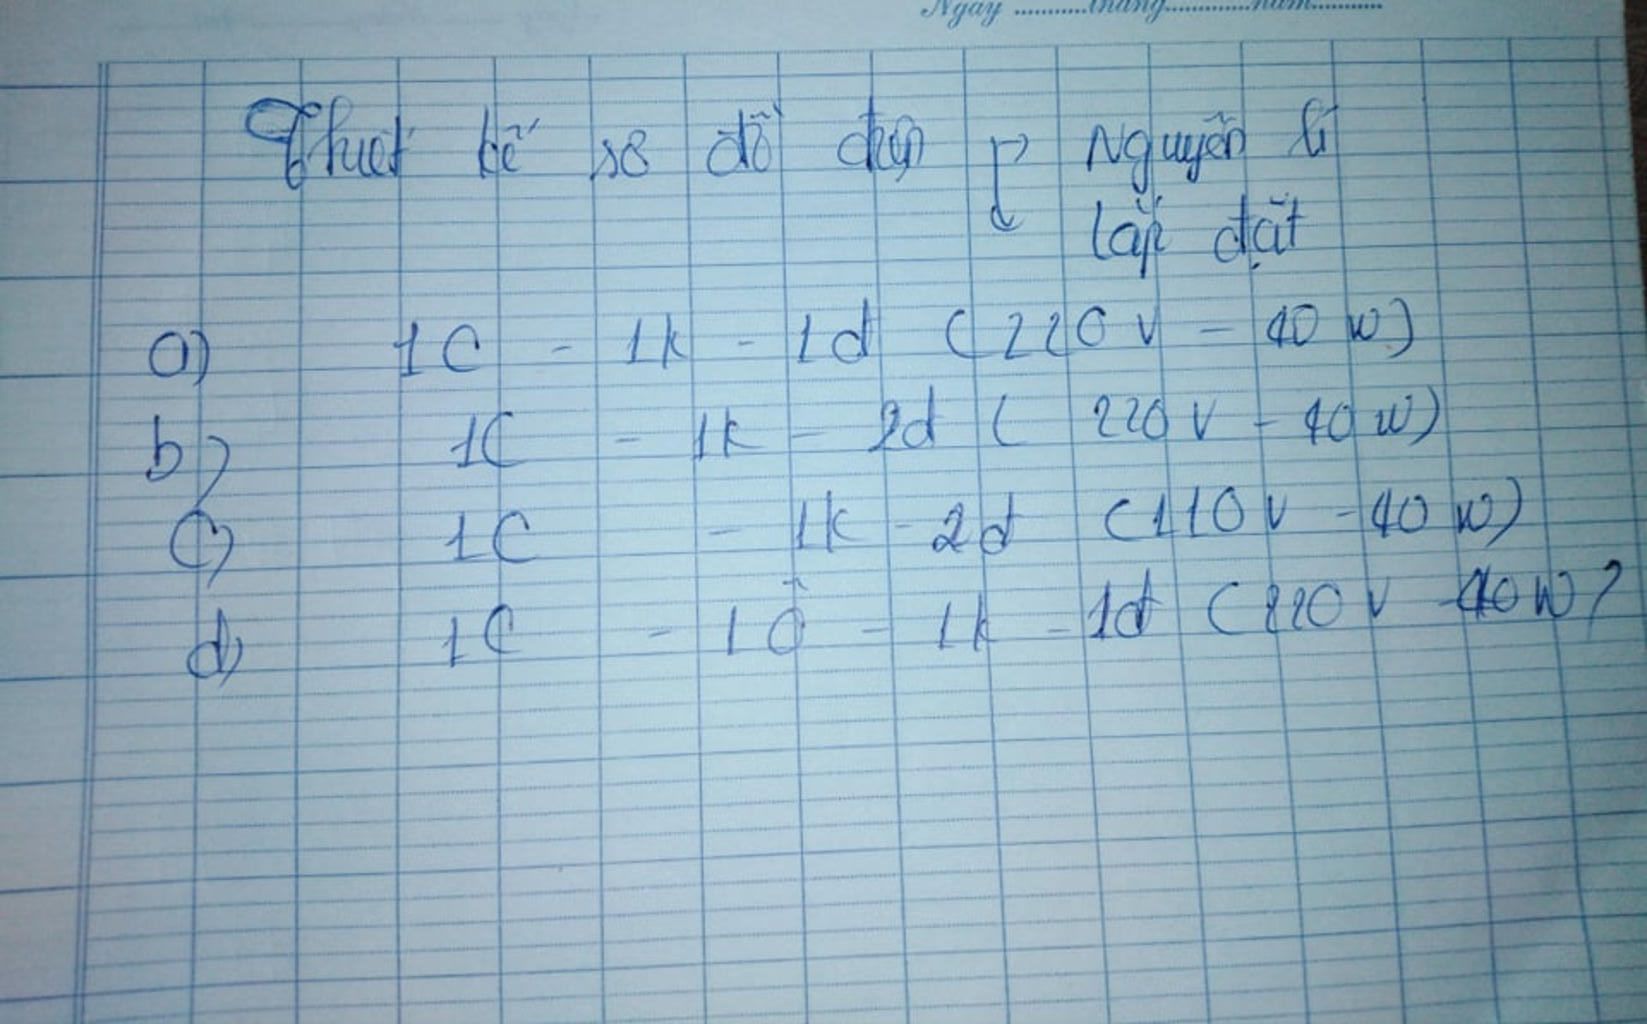 Ngày ...........tháng............năm...........
Thiết kế sơ đồ điện Nguyên lí
lắp đặt
a) 1C - 1k - 1đ (220V - 40W)
b) 1C - 1k - 2đ (220V - 40W)
c) 1C - 1k - 2đ (110V - 40W)
d) 1C - 1Ổ - 1k - 1đ (220V - 40W)